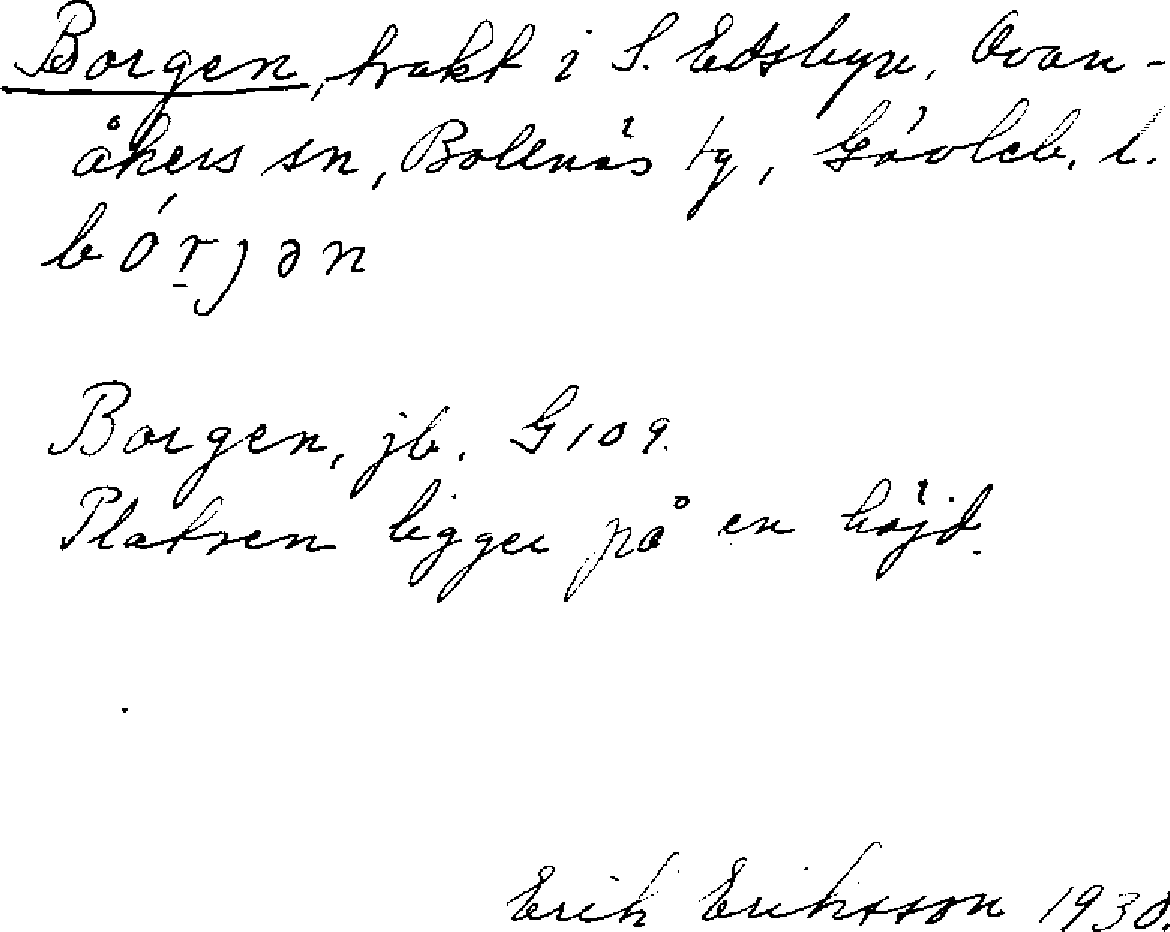 Borgen, trakt i S. Edsbyn, Ovan-
åkers sn, Bollnäs tg, Gävleb. l.
bór̠jən
Borgen, jb. G109.
Platsen ligger på en höjd.
Erik Eriksson 1930.